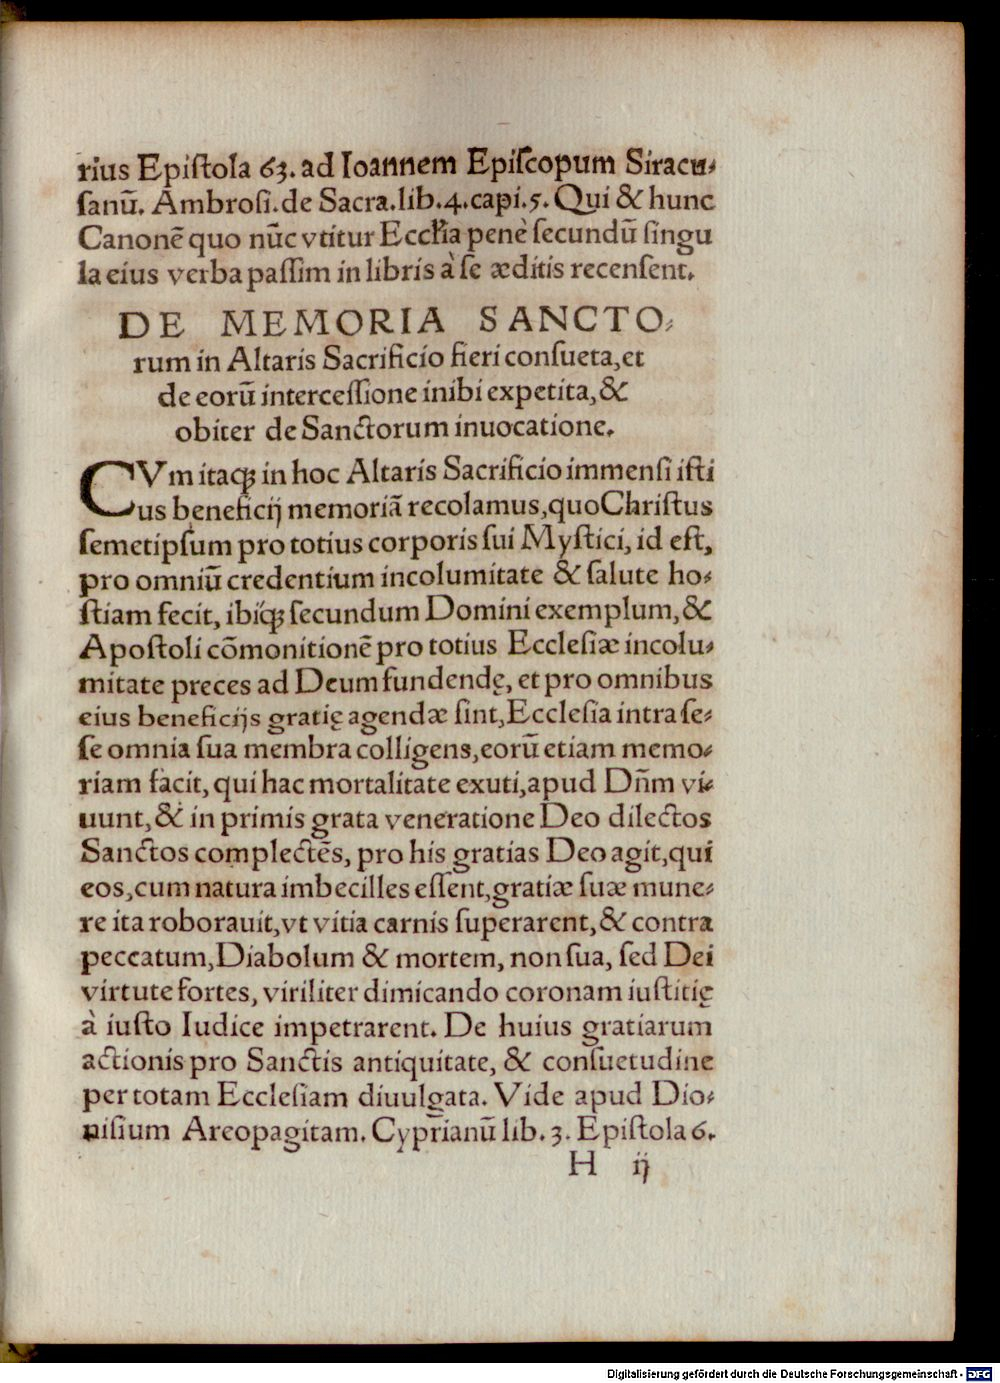 rius Epiſtola 63. ad Ioannem Epiſcopum Siracu⸗
ſanū. Ambroſi. de Sacra. lib. 4. capi. 5. Qui & hunc
Canonē quo nūc vtitur Eccl̄ia penè ſecundū ſingu
la eius verba paſſim in libris à ſe æditis recenſent.
DE MEMORIA SANCTO⸗
rum in Altaris Sacrificio fieri conſueta, et
de eorū interceſſione inibi expetita, &
obiter de Sanctorum inuocatione.
CVm itaqꝫ in hoc Altaris Sacrificio immenſi iſti
us beneficij memoriā recolamus, quo Chriſtus
ſemetipſum pro totius corporis ſui Myſtici, id eſt,
pro omniū credentium incolumitate & ſalute ho⸗
ſtiam fecit, ibiqꝫ ſecundum Domini exemplum, &
Apoſtoli cōmonitionē pro totius Eccleſiæ incolu⸗
mitate preces ad Deum fundendę, et pro omnibus
eius beneficijs gratię agendæ ſint, Eccleſia intra ſe⸗
ſe omnia ſua membra colligens, eorū etiam memo⸗
riam facit, qui hac mortalitate exuti, apud Dn̄m vi⸗
uunt, & in primis grata veneratione Deo dilectos
Sanctos complectēs, pro his gratias Deo agit, qui
eos, cum natura imbecilles eſſent, gratiæ ſuæ mune⸗
re ita roborauit, vt vitia carnis ſuperarent, & contra
peccatum, Diabolum & mortem, non ſua, ſed Dei
virtute fortes, viriliter dimicando coronam iuſtitię
à iuſto Iudice impetrarent. De huius gratiarum
actionis pro Sanctis antiquitate, & conſuetudine
per totam Eccleſiam diuulgata. Vide apud Dio⸗
niſium Areopagitam. Cyprianū lib. 3. Epiſtola 6.
H ij
Digitalisierung gefördert durch die Deutsche Forschungsgemeinschaft - DFG